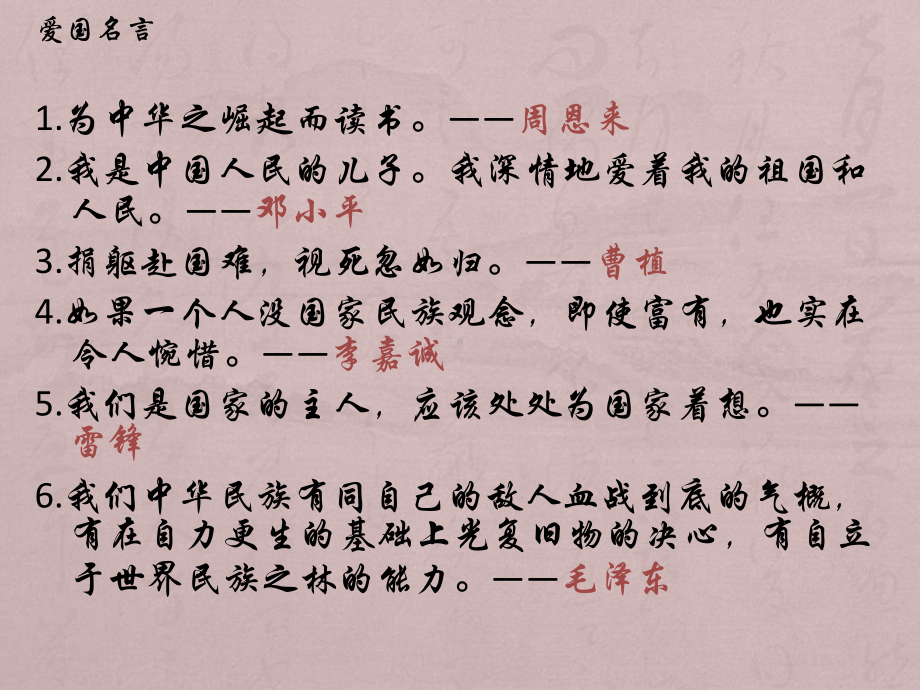 爱国名言
1.为中华之崛起而读书。——周恩来
2.我是中国人民的儿子。我深情地爱着我的祖国和
人民。——邓小平
3.捐躯赴国难，视死忽如归。——曹植
4.如果一个人没国家民族观念，即使富有，也实在
令人惋惜。——李嘉诚
5.我们是国家的主人，应该处处为国家着想。——
雷锋
6.我们中华民族有同自己的敌人血战到底的气概，
有在自力更生的基础上光复旧物的决心，有自立
于世界民族之林的能力。——毛泽东